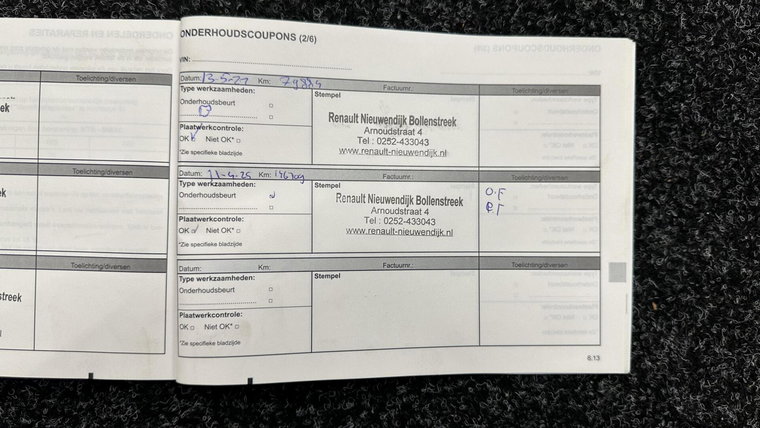 ONDERHOUDSCOUPONS (2/6)
VIN:
Toelichting/diversen
Datum: Km: Factuurnr.: Toelichting/diversen
Type werkzaamheden:
Onderhoudsbeurt
Stempel
Renault Nieuwendijk Bollenstreek
Arnoudstraat 4
Tel : 0252-433043
www.renault-nieuwendijk.nl
Plaatwerkcontrole:
OK Niet OK*
*Zie specifieke bladzijde
Toelichting/diversen
Datum: 11-4-25 Km: Factuurnr.: Toelichting/diversen
Type werkzaamheden:
Onderhoudsbeurt
Stempel
Renault Nieuwendijk Bollenstreek
Arnoudstraat 4
Tel : 0252-433043
www.renault-nieuwendijk.nl
O.F
Plaatwerkcontrole:
OK Niet OK*
*Zie specifieke bladzijde
Toelichting/diversen
Datum: Km: Factuurnr.: Toelichting/diversen
Type werkzaamheden:
Onderhoudsbeurt
Stempel
Plaatwerkcontrole:
OK Niet OK*
*Zie specifieke bladzijde
6.13